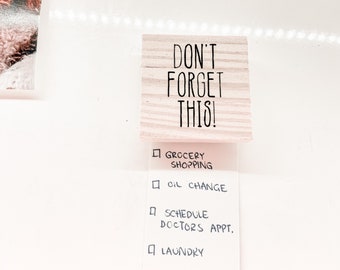 DON'T
FORGET
THIS!
GROCERY
SHOPPING
OIL CHANGE
SCHEDULE
DOCTORS APPT.
LAUNDRY